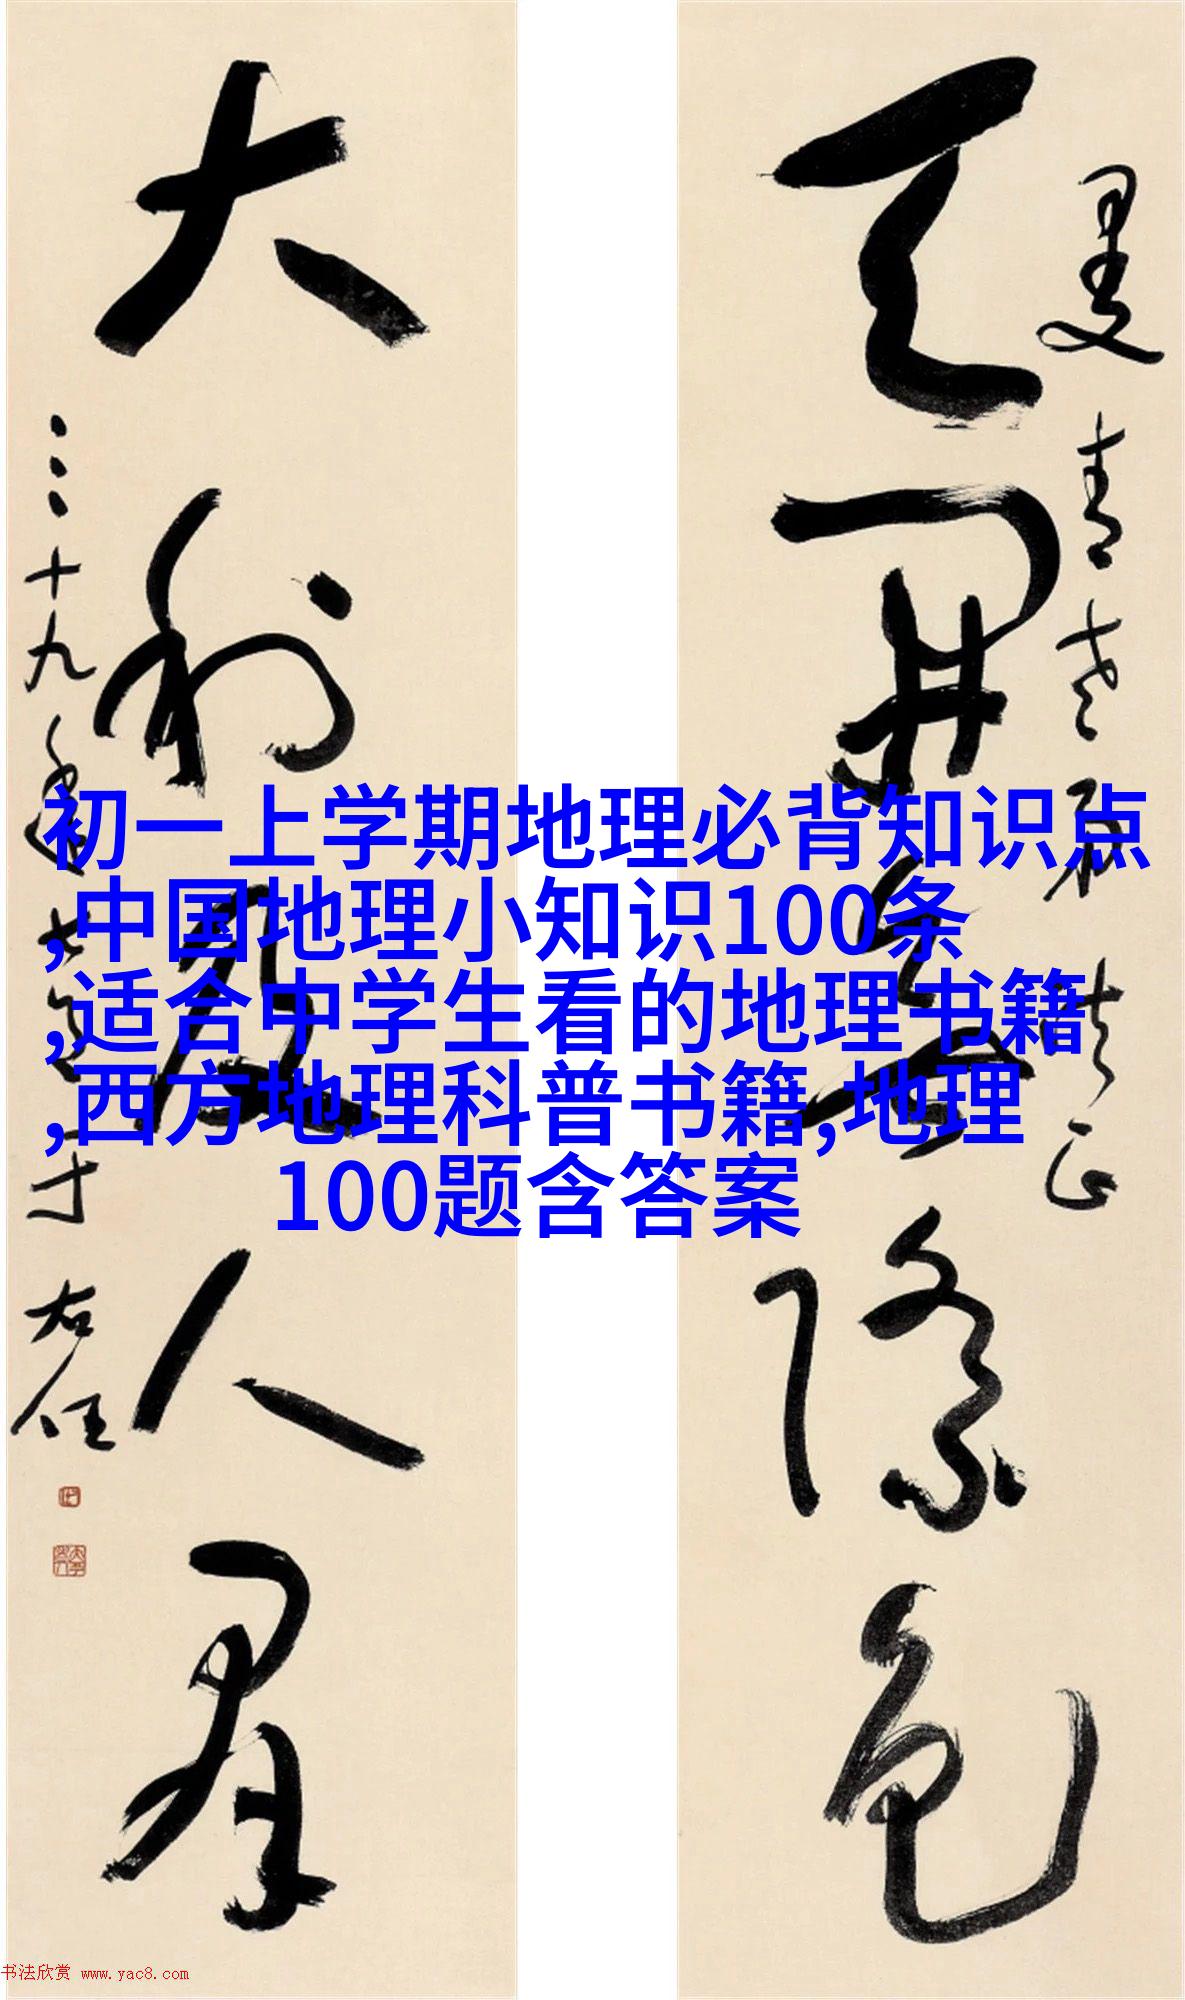 天開無際色
大利及人羣
三十九年
于右任
初一上学期地理必背知识点
,中国地理小知识100条
,适合中学生看的地理书籍
,西方地理科普书籍,地理
100题含答案
书法欣赏 www.yac8.com